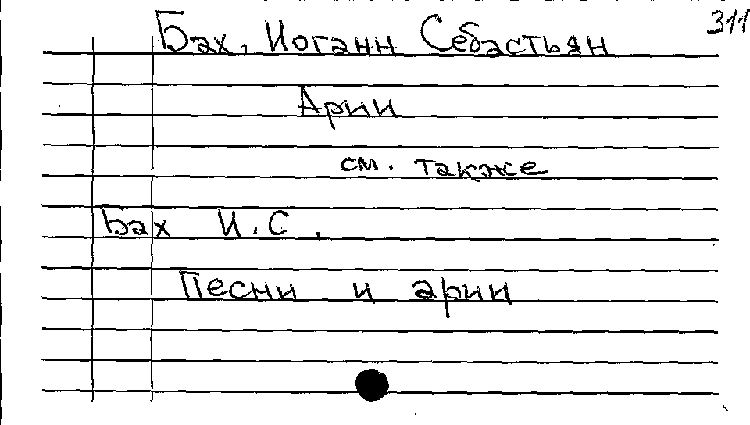 311
Бах, Иоганн Себастьян
Арии
см. также
Бах И.С.
Песни и арии